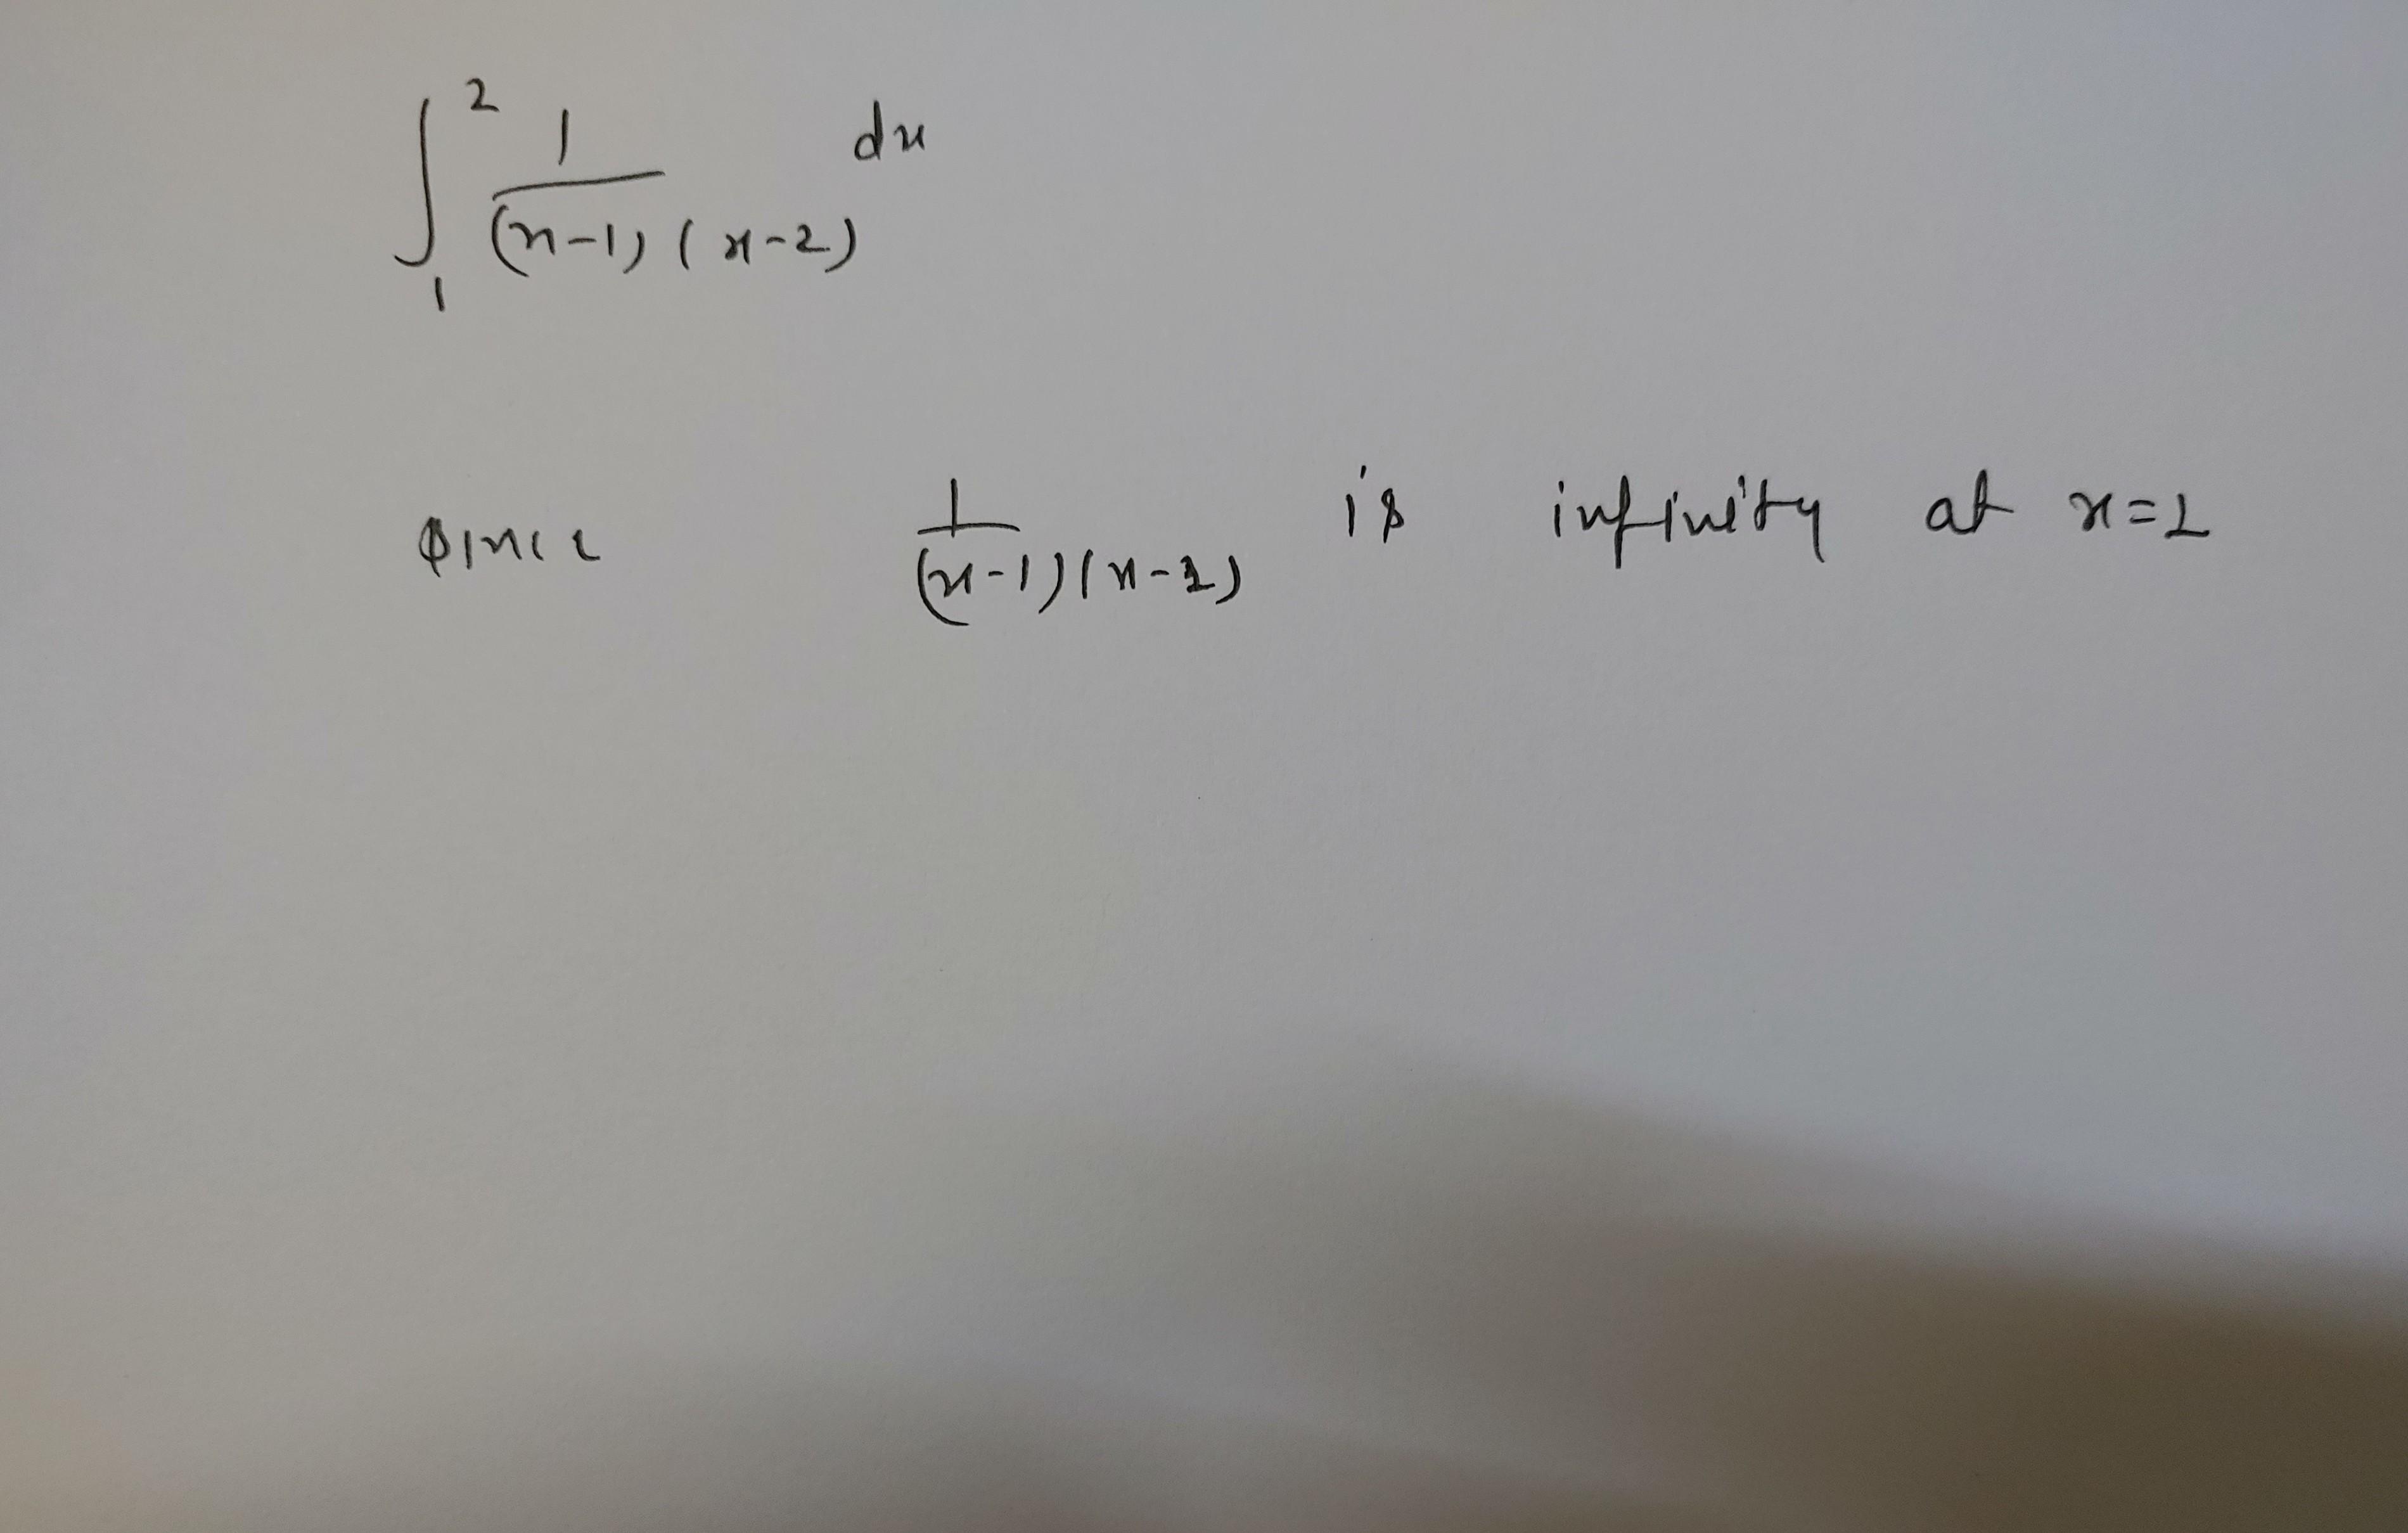 ∫₁² 1/((x-1)(x-2)) dx
since 1/((x-1)(x-2)) is infinity at x=2